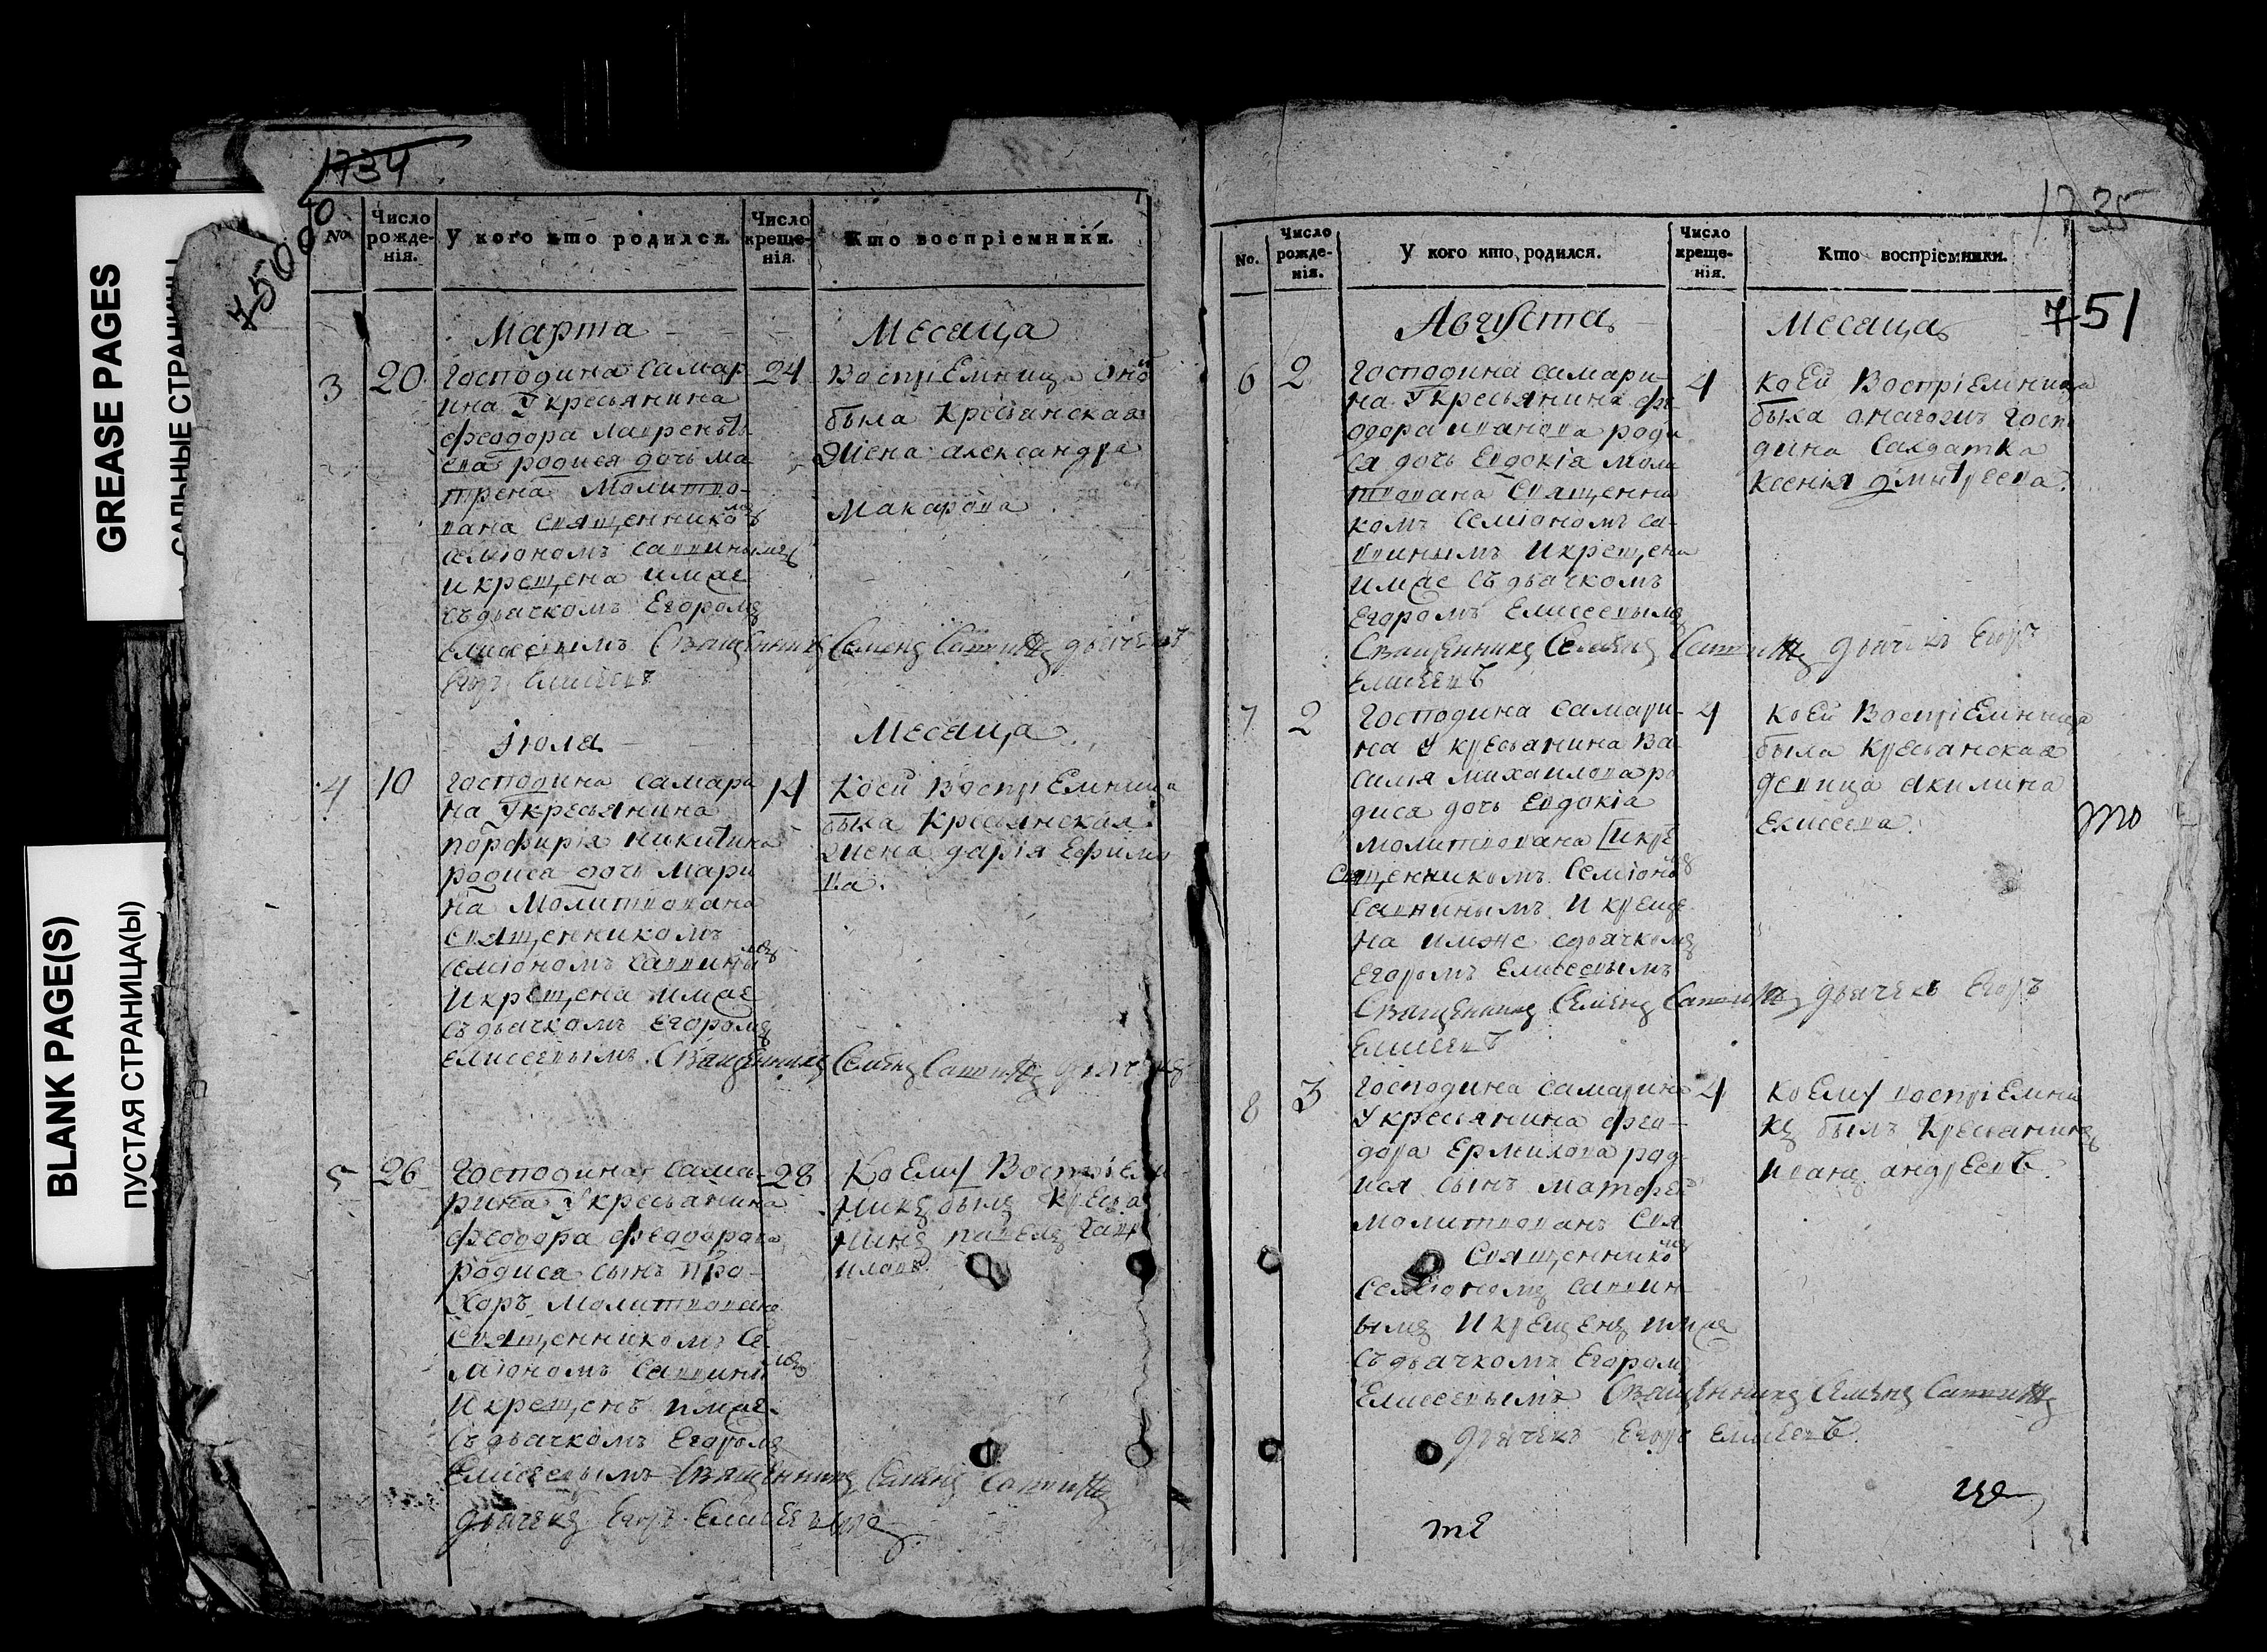 GREASE PAGES
САЛЬНЫЕ СТРАНИЦЫ
BLANK PAGE(S)
ПУСТАЯ СТРАНИЦА(Ы)
1734
750
No.
Число рожде-нія.
У кого кто родился.
Число креще-нія.
Кто воспріемники.
Марта Месеца
3 20 24
Господина Самар
ина У кресьянина
феодора лаврентъ
ева родися дочь ма
трена Молитво-
вана священникомъ
семіономъ саввинымъ
и крещена имже
съ дьячкомъ Егоромъ
Елисеевымъ Священникъ Семенъ Саввинъ дьячекъ
Егоръ Елисеевъ
Воспріемница оной
была кресьянская
жена александра
Макарова
Іюля Месеца
4 10 14
Господина самари
на У кресьянина
порфирія никитина
родися дочь Мари
на Молитвована
священникомъ
семіономъ саввинымъ
и крещена имже
съ дьячкомъ Егоромъ
елисеевымъ Священникъ Семенъ Саввинъ
коей воспріемница
была кресьянская
жена дарія Ефимо
ва.
5 26 28
Господина Сама-
рина У кресьянина
феодора феодорова
родися сынъ про-
хоръ молитвованъ
Священникомъ Се
міономъ саввинымъ
и крещенъ имже
съ дьячкомъ Егоромъ
Елисеевымъ Священникъ Семенъ Саввинъ
дьячекъ Егоръ Елисеевъ
Коему Воспріем
никъ былъ кресья
нинъ павелъ гавр
иловъ.
1735
751
No.
Число рожде-нія.
У кого кто родился.
Число креще-нія.
Кто воспріемники.
Августа Месеца
6 2 4
Господина самари-
на У кресьянина фе-
одора иванова роди
ся дочь Евдокія моли
твована Священни
комъ семіономъ са-
ввинымъ и крещена
имже съ дьячкомъ
Егоромъ Елисеевымъ
Священникъ Семенъ Саввинъ дьячекъ Егоръ
Елисеевъ
коей Воспріемница
была оногожъ госпо
дина Салдатка
ксенія дмитреева.
7 2 4
Господина самари-
на У кресьянина Ва
силія михаилова ро
дися дочь Евдокія
молитвована [и кре
Священникомъ семіономъ
саввинымъ и креще
на имже сдьячкомъ
Егоромъ Елисеевымъ
Священникъ Семенъ Саввинъ дьячекъ Егоръ
Елисеевъ
коей Воспріемница
была кресьянская
девица акилина
елисеева.
то
8 3 4
Господина самарина
У кресьянина фео-
дора Ермилова род
ися сынъ матфей
молитвованъ Свя
Священникомъ
семіономъ саввин
ымъ и крещенъ имже
съ дьячкомъ Егоромъ
Елисеевымъ Священникъ Семенъ Саввинъ
дьячекъ Егоръ Елисеевъ.
коему воспріемни
къ былъ кресьянинъ
иванъ андреевъ.